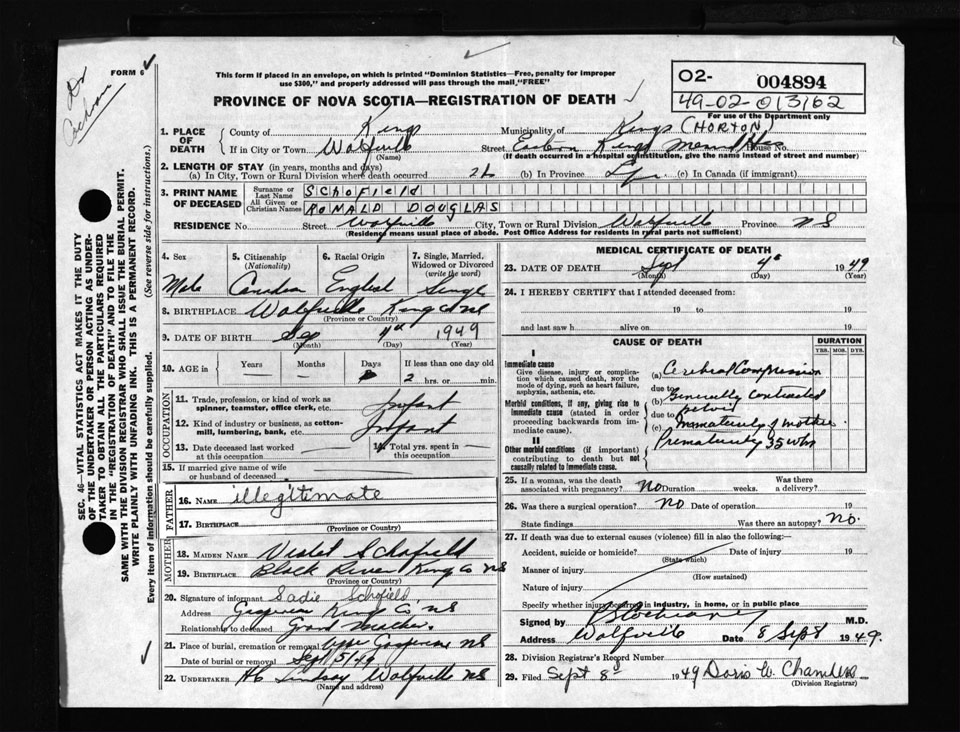 Dr Cochrane
FORM 6
This form if placed in an envelope, on which is printed "Dominion Statistics—Free, penalty for improper
use $300," and properly addressed will pass through the mail, "FREE"
O2- 004894
49-02-013162
For use of the Department only
PROVINCE OF NOVA SCOTIA—REGISTRATION OF DEATH
1. PLACE OF DEATH
County of Kings Municipality of Kings (HORTON)
If in City or Town Wolfville Street Eastern Kings Mem. House No.
(Name) (If death occurred in a hospital or institution, give the name instead of street and number)
2. LENGTH OF STAY (in years, months and days)
(a) In City, Town or Rural Division where death occurred 2h (b) In Province (c) In Canada (if immigrant)
3. PRINT NAME OF DECEASED
Surname or Last Name SCHOFIELD
All Given or Christian Names RONALD DOUGLAS
RESIDENCE No. Street Wolfville City, Town or Rural Division Wolfville Province NS
(Residence means usual place of abode. Post Office Address for residents in rural parts not sufficient)
4. Sex 5. Citizenship (Nationality) 6. Racial Origin 7. Single, Married, Widowed or Divorced (write the word)
Male Canadian English Single
8. BIRTHPLACE Wolfville Kings Co NS
(Province or Country)
9. DATE OF BIRTH Sep 4th 1949
(Month) (Day) (Year)
10. AGE in Years Months Days If less than one day old
— — 2 hrs. or min.
OCCUPATION
11. Trade, profession, or kind of work as spinner, teamster, office clerk, etc. Infant
12. Kind of industry or business, as cotton-mill, lumbering, bank, etc. Infant
13. Date deceased last worked at this occupation 14. Total yrs. spent in this occupation
15. If married give name of wife or husband of deceased
FATHER
16. NAME illegitimate
17. BIRTHPLACE
(Province or Country)
MOTHER
18. MAIDEN NAME Violet Schofield
19. BIRTHPLACE Black River Kings Co NS
(Province or Country)
20. Signature of informant Sadie Schofield
Address Gaspereau Kings Co NS
Relationship to deceased Grand Mother.
21. Place of burial, cremation or removal Upper Gaspereau NS
Date of burial or removal Sept 5/49
22. UNDERTAKER HC Lindsay Wolfville NS
(Name and address)
MEDICAL CERTIFICATE OF DEATH
23. DATE OF DEATH Sept 4th 1949
(Month) (Day) (Year)
24. I HEREBY CERTIFY that I attended deceased from:
19 to 19
and last saw h alive on 19
CAUSE OF DEATH DURATION
YRS. MOS. DYS.
I
Immediate cause
Give disease, injury or complication which caused death, NOT the mode of dying, such as heart failure, asphyxia, asthenia, etc.
(a) Cerebral Compression
due to
Morbid conditions, if any, giving rise to immediate cause (stated in order proceeding backwards from immediate cause).
(b) Generally contracted
due to pelvis
(c) Immaturity of mother
II
Other morbid conditions (if important) contributing to death but not causally related to immediate cause.
Prematurity 35 wks
25. If a woman, was the death associated with pregnancy? No Duration weeks. Was there a delivery?
26. Was there a surgical operation? No Date of operation 19
State findings Was there an autopsy? No.
27. If death was due to external causes (violence) fill in also the following:
Accident, suicide or homicide? Date of injury 19
(State which)
Manner of injury
(How sustained)
Nature of injury
Specify whether injury occurred in industry, in home, or in public place
Signed by Cochrane M.D.
Address Wolfville Date 8 Sept 1949.
28. Division Registrar's Record Number
29. Filed Sept 8th 1949 Doris W. Chambers
(Division Registrar)
SEC. 46—VITAL STATISTICS ACT MAKES IT THE DUTY
OF THE UNDERTAKER OR PERSON ACTING AS UNDER-
TAKER TO OBTAIN ALL THE PARTICULARS REQUIRED
IN THE "REGISTRATION OF DEATH" AND TO FILE THE
SAME WITH THE DIVISION REGISTRAR WHO SHALL ISSUE THE BURIAL PERMIT.
WRITE PLAINLY WITH UNFADING INK. THIS IS A PERMANENT RECORD.
Every item of information should be carefully supplied. (See reverse side for instructions.)